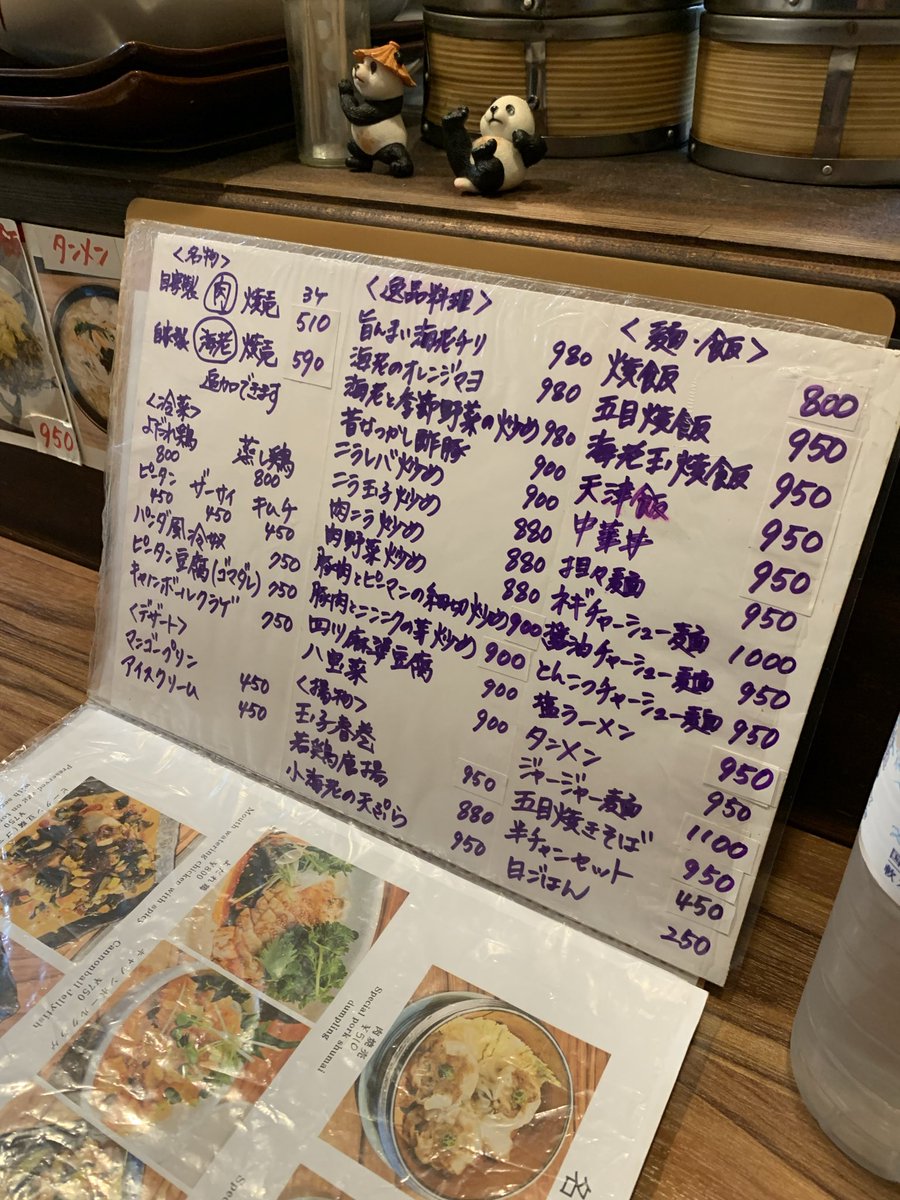 タンメン
950
<名物>
自家製 肉 焼売 3ケ 510
自家製 海老 焼売 590
追加できます
<冷菜>
よだれ鶏 800 蒸し鶏 800
ピータン 450 ザーサイ 450 キムチ 450
パンダ風冷奴 750
ピータン豆腐(ゴマダレ) 750
キャノンボールクラゲ 750
<デザート>
マンゴープリン 450
アイスクリーム 450
<逸品料理>
旨んまい海老チリ 980
海老のオレンジマヨ 980
海老と季節野菜の炒め 980
昔なつかし酢豚 900
ニラレバ炒め 900
ニラ玉子炒め 880
肉ニラ炒め 880
肉野菜炒め 880
豚肉とピーマンの細切炒め 900
豚肉とニンニクの芽炒め 900
四ツ麻婆豆腐 900
八宝菜 900
<揚物>
玉子春巻 950
若鶏唐揚 880
小海老の天ぷら 950
<麺・飯>
焼飯 800
五目焼飯 950
海老玉焼飯 950
天津飯 950
中華丼 950
担々麺 950
ネギチャーシュー麺 1000
醤油チャーシュー麺 950
とんこつチャーシュー麺 950
塩ラーメン 950
タンメン 950
ジャージャー麺 1100
五目焼きそば 950
半チャンセット 450
白ごはん 250
Preserved egg on tofu
¥750
Mouth watering chicken with spices
よだれ鶏
¥800
Cannonball Jellyfish
キャノンボールクラゲ
¥750
Special pork shumai
dumpling
肉焼売
¥510
名